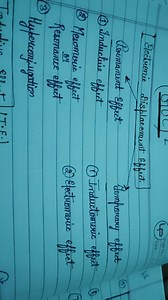 Electronic displacement Effect
Permanent Effect
① Inductive effect
② Mesomeric effect
or
Resonance effect
③ Hyperconjugation
Temporary effect
① Inductomeric effect
② Electromeric effect
Inductive effect [I.E.]